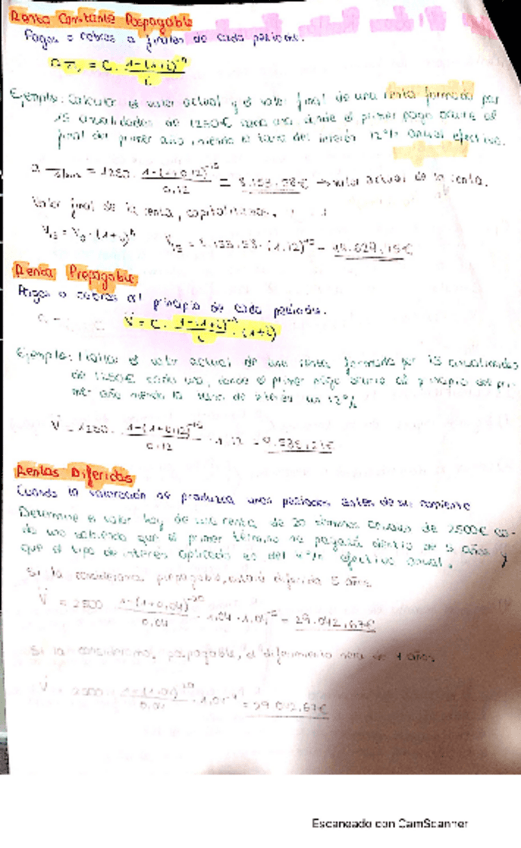 Renta Constante Pospagable
Pagos o cobros a finales de cada periodo.
= C · 1-(1+i)⁻ⁿ / i
Ejemplo: Calcular el valor actual y el valor final de una renta formada por
15 anualidades de 1250€ cada una, donde el primer pago ocurre al
final del primer año, siendo el tanto del interés 12% anual efectivo.
= 1250 · / 0,12 = → valor actual de la renta.
Valor final de la renta,
V₁₅ = V₀ · (1+i)ⁿ
Renta Prepagable
Pagos o cobros al principio de cada periodo.
V̈ = C · 1-(1+i)⁻ⁿ / i · (1+i)
Ejemplo: el valor actual de una renta formada por 15 anualidades
de 1250€ cada una, donde el primer pago ocurre al principio del pri-
mer año siendo el tanto de interés un 12%
V̈ = 1250 · 1-(1+0,12)⁻¹⁵ / 0,12 · 1,12 =
Rentas Diferidas
Cuando la valoración se produzca unos periodos antes de su comienzo
Determine el valor hoy de una renta de 20 términos anuales de 2500€ ca-
da uno sabiendo que el primer término se pagará dentro de 5 años y
que el tipo de interés aplicado es del 4% efectivo anual.
Si la consideramos prepagable, estará diferida 5 años
V̈ = 2500 · 1-(1+0,04)⁻²⁰ / 0,04 · 1,04 · 1,04⁻⁵ = 29.012,67€
Si la consideramos pospagable, el diferimiento será de 4 años
= 29.012,67€
Escaneado con CamScanner